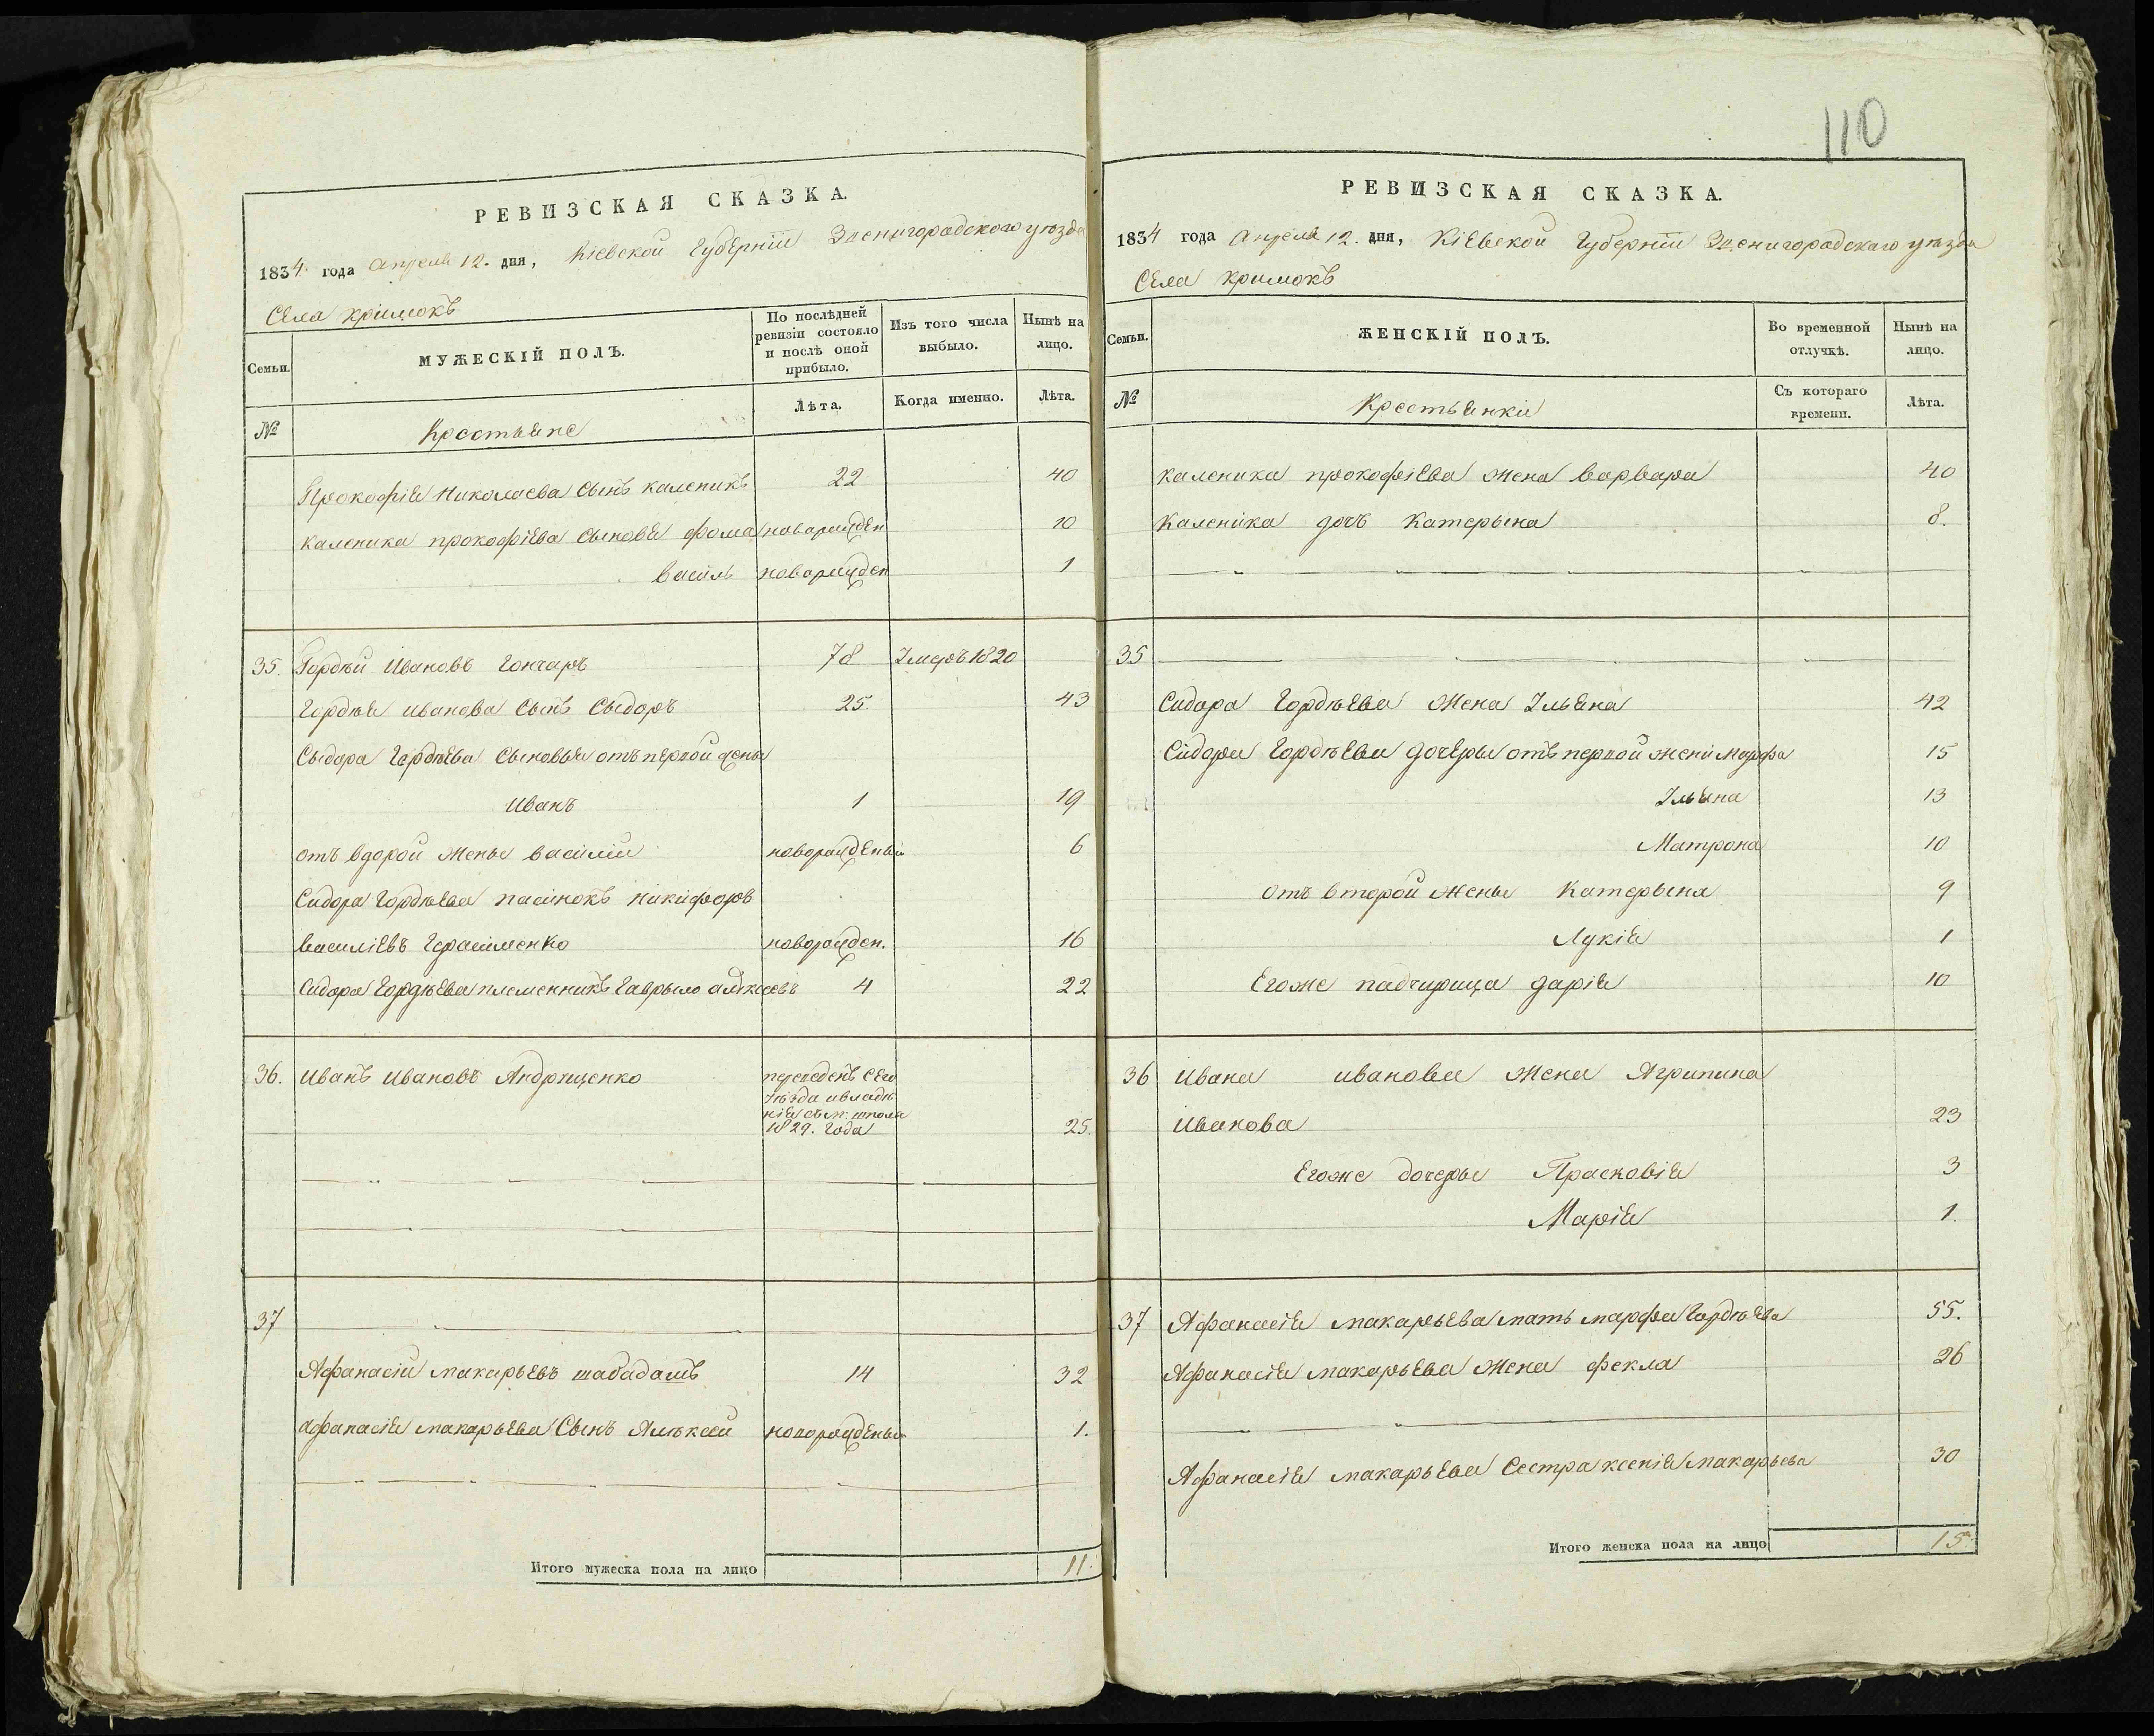 110
РЕВИЗСКАЯ СКАЗКА.
1834 года Апреля 12. дня, Кіевской Губерніи Звенигородского уезда
Села Кримокъ
Семьи.
МУЖЕСКІЙ ПОЛЪ.
По послѣдней ревизіи состояло и послѣ оной прибыло.
Изъ того числа выбыло.
Нынѣ на лицо.
№
Крестьяне
Лѣта.
Когда именно.
Лѣта.
Прокофія Николаева Сынъ каленикъ 22 40
каленика прокофіева Сыновя фома новорожден 10
василь новорожден 1
35. Гордѣй Ивановъ Гончаръ 78 Умеръ 1820
Гордѣя иванова Сынъ Сыдоръ 25. 43
Сыдора Гордѣева Сыновья отъ первой жены
Иванъ 1 19
отъ вдорой жены василій новорожденый 6
Сидора Гордѣева пасінокъ никифоръ
василіевъ Герасименко новорожден. 16
Сидора Гордѣева племенникъ Гаврыло алѣксеевъ 4 22
36. Иванъ Ивановъ Андрущенко переведенъ сего
уѣзда ивладѣ
нія съ м: шпола
1829. года 25.
37
Афанасій макарьевъ шабадашъ 14 32
афанасія макарьева Сынъ Алѣксей новорожденый 1.
Итого мужеска пола на лицо 11.
РЕВИЗСКАЯ СКАЗКА.
1834 года Апреля 12. дня, Кіевской Губерніи Звенигородскаго уезда
Села Кримокъ
Семьи.
ЖЕНСКІЙ ПОЛЪ.
Во временной отлучкѣ.
Нынѣ на лицо.
№
Крестьянки
Съ котораго времени.
Лѣта.
каленика прокофіева жена варвара 40
Каленика дочъ Катерына 8.
35
Сидора Гордѣева жена Ульяна 42
Сидора Гордѣева дочеры отъ первой жени Марфа 15
Ульяна 13
Матрона 10
отъ второй жены Катерына 9
Лукія 1
Егоже падчирица дарія 10
36 Ивана иванова жена Агрипина
Иванова 23
Егоже дочеры Прасковія 3
Марія 1.
37 Афанасія макарьева мать марфа Гордѣева 55.
Афанасія макарьева жена фекла 26
Афанасія макарьева Сестра ксенія макарьева 30
Итого женска пола на лицо 15